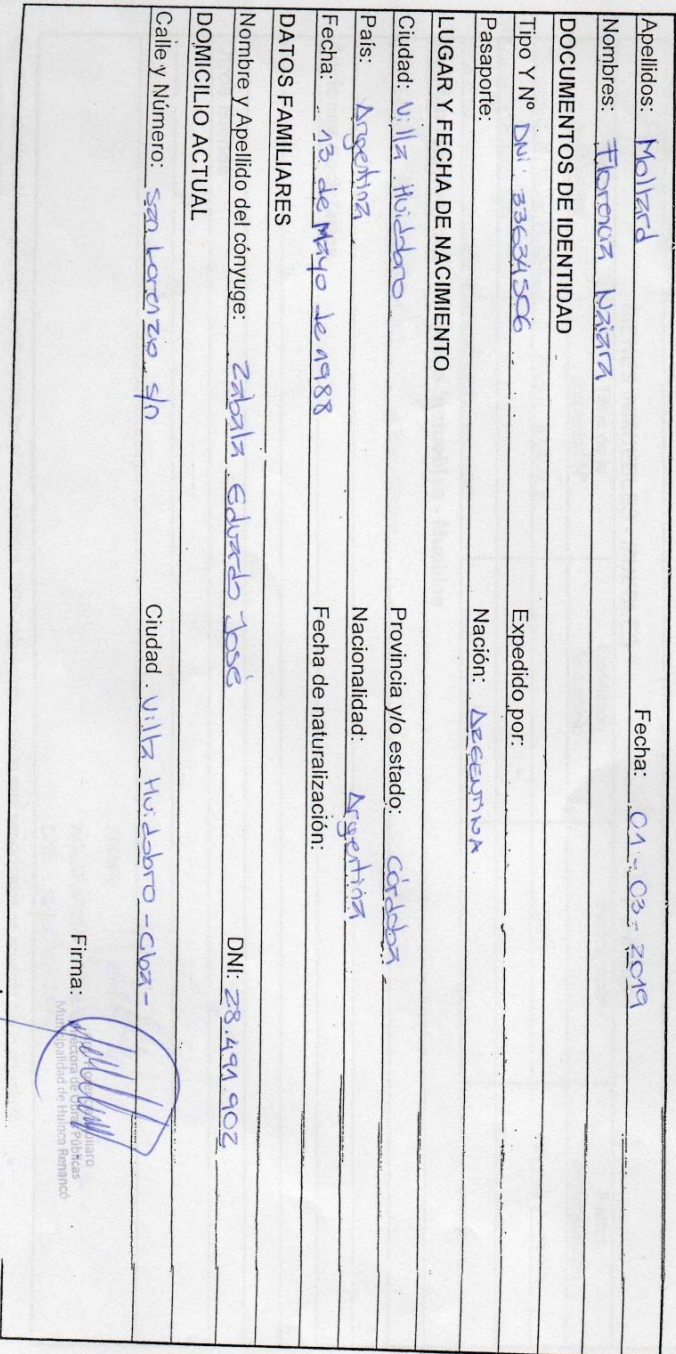 Apellidos: Mollard Fecha: 01-03-2019
Nombres: Florencia Naiara
DOCUMENTOS DE IDENTIDAD
Tipo Y Nº DNI: 33634506 Expedido por:
Pasaporte: Nación: ARGENTINA
LUGAR Y FECHA DE NACIMIENTO
Ciudad: Villa Huidobro Provincia y/o estado: Córdoba
País: Argentina Nacionalidad: Argentina
Fecha: 13 de Mayo de 1988 Fecha de naturalización:
DATOS FAMILIARES
Nombre y Apellido del cónyuge: Zabala Eduardo José DNI: 28.491.902
DOMICILIO ACTUAL
Calle y Número: San Lorenzo s/n Ciudad: Villa Huidobro - Cba-
Firma:
Directora de Obras Públicas
Municipalidad de Huinca Renancó